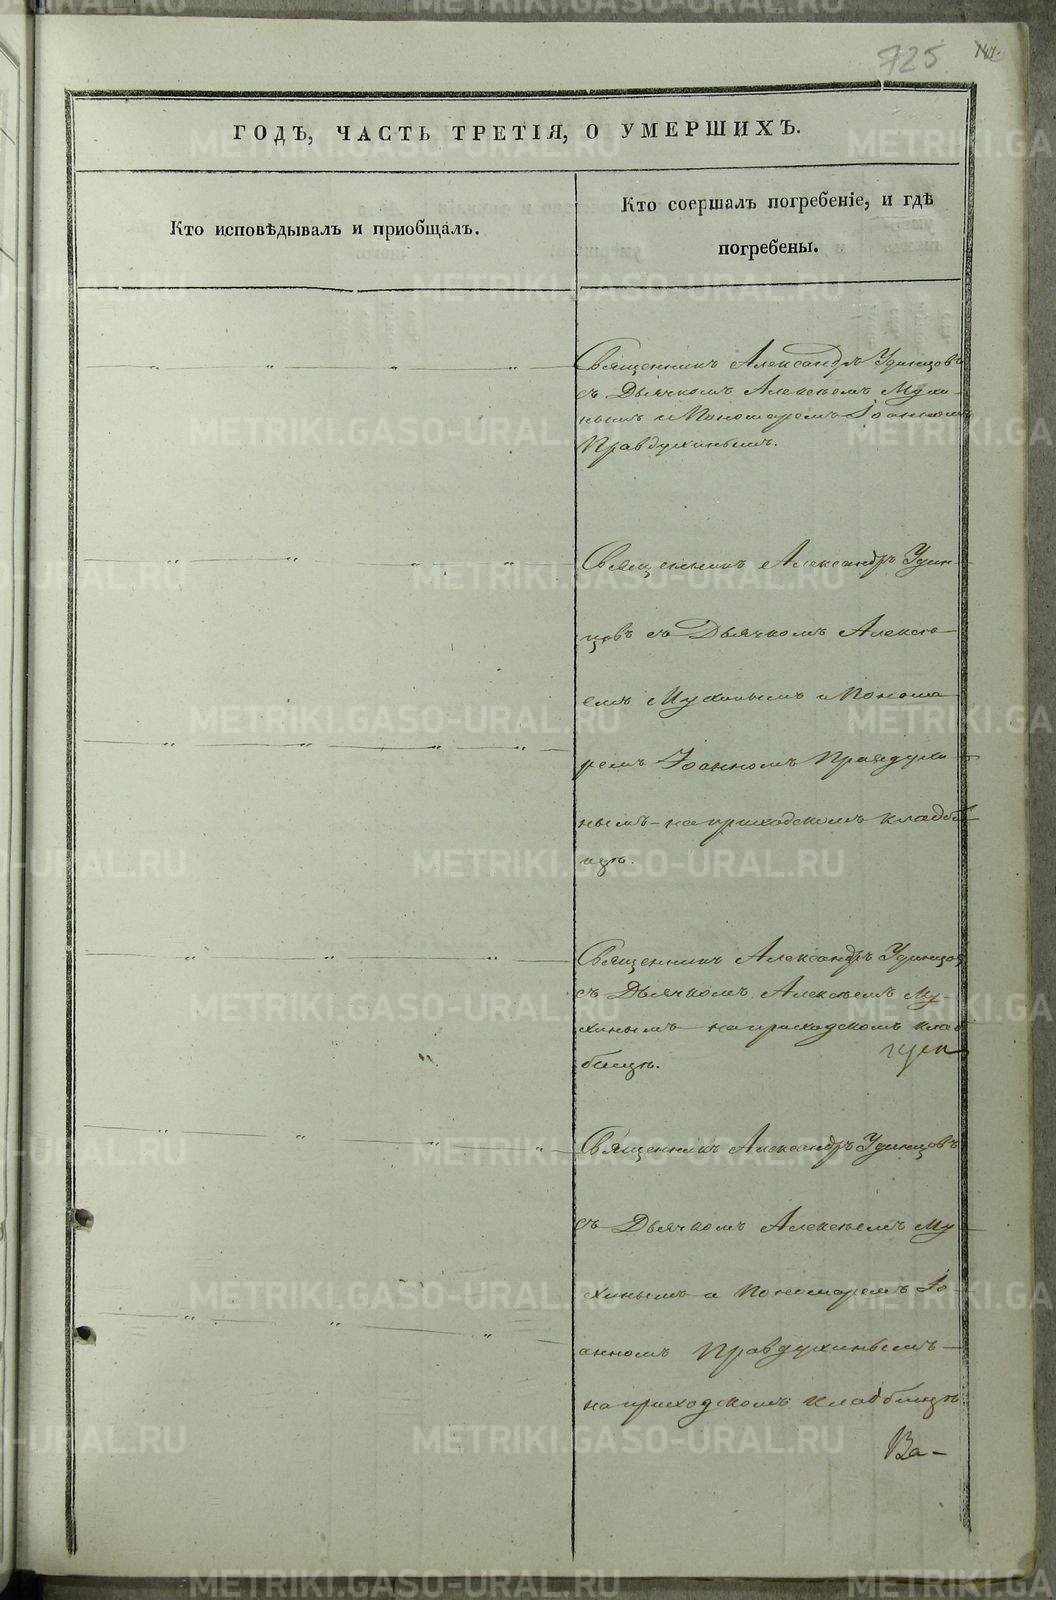 725
ГОДѢ, ЧАСТЬ ТРЕТІЯ, О УМЕРШИХЪ.
Кто исповѣдывалъ и пріобщалъ.
Кто соершалъ погребеніе, и гдѣ
погребены.
Священникъ Александръ Удинцовъ
съ Дьячкомъ Алексѣемъ Мухи-
нымъ и Пономаремъ Іоанномъ
Правдухинымъ.
Священникъ Александръ Удин-
цовъ съ Дьячкомъ Алексѣ-
емъ Мухинымъ и Понома-
ремъ Іоанномъ Правдухи-
нымъ - на приходскомъ кладби-
щѣ.
Священникъ Александръ Удинцовъ
съ Дьячкомъ Алексѣемъ Му-
хинымъ на приходскомъ клад-
бищѣ.
Священникъ Александръ Удинцовъ
съ Дьячкомъ Алексѣемъ Му-
хинымъ и Пономаремъ Іо-
анномъ Правдухинымъ -
на приходскомъ кладбищѣ
Ва-
METRIKI.GASO-URAL.RU